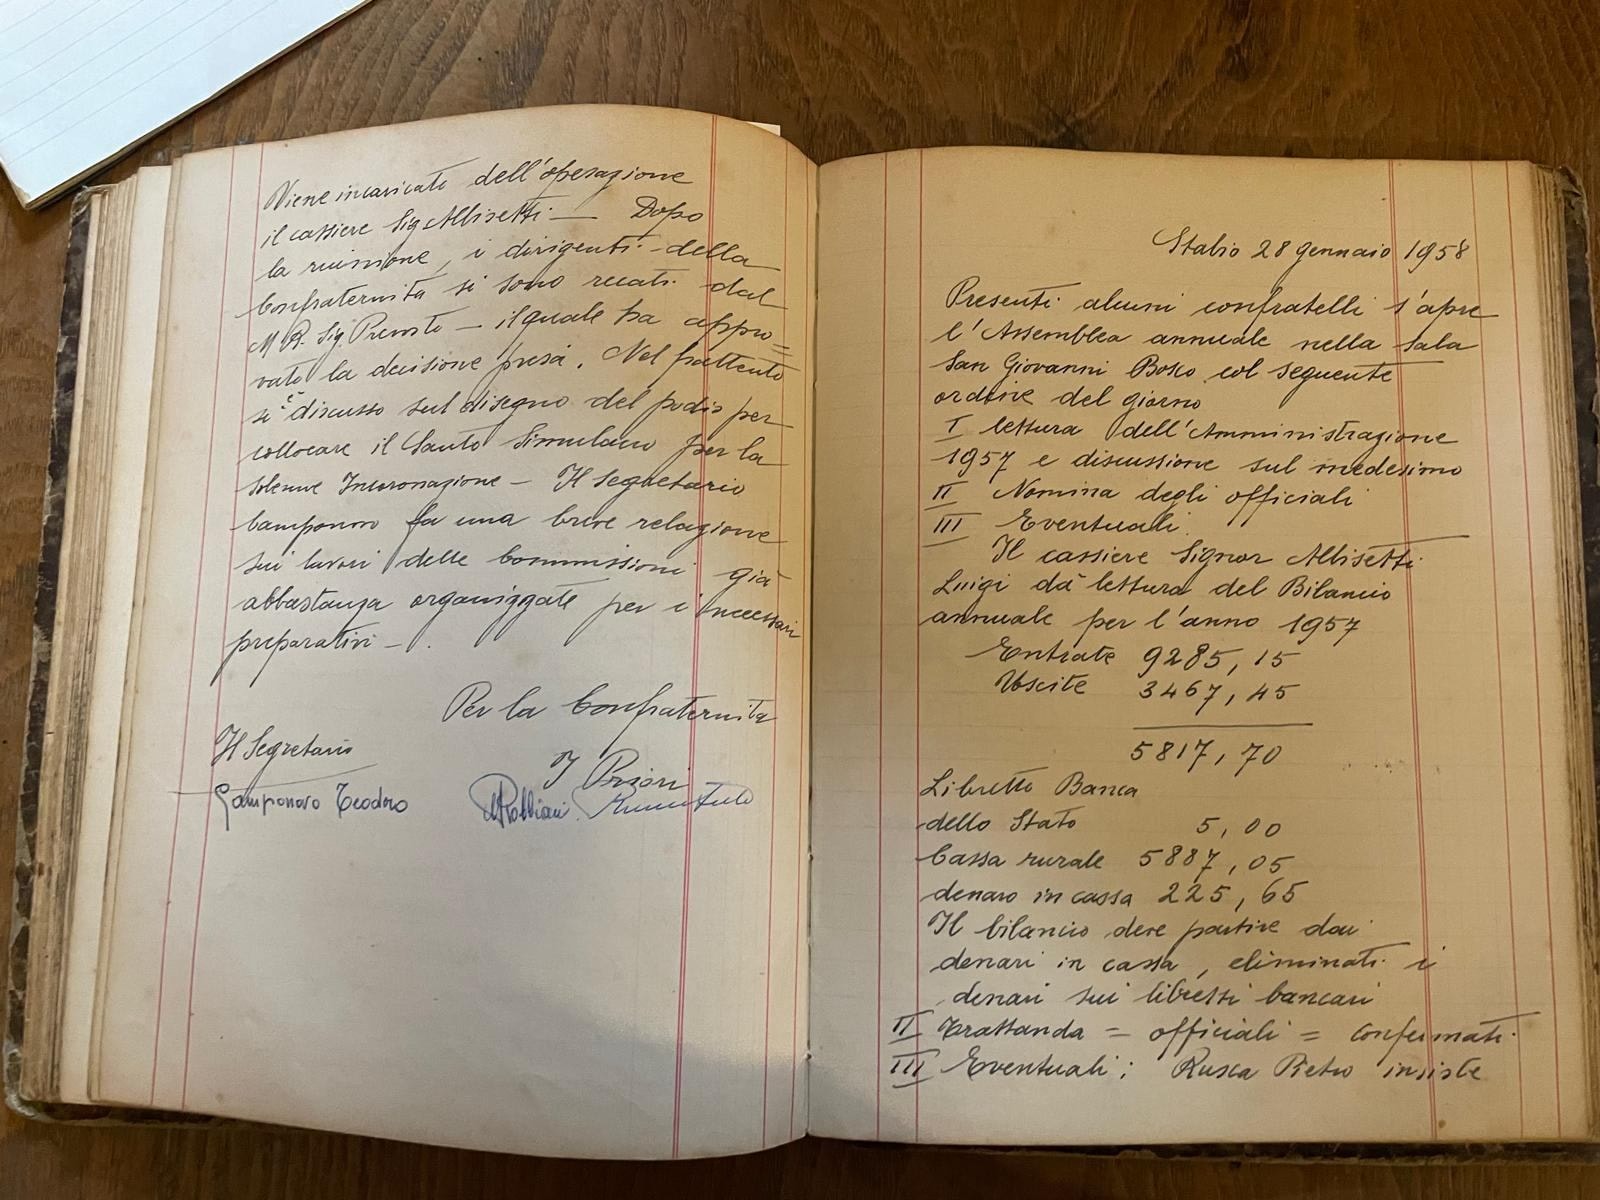 Viene incaricato dell'operazione
il cassiere Sig Albisetti — Dopo
la riunione, i dirigenti della
Confraternita si sono recati dal
M R. Sig Prevosto — il quale ha appro=
vato la decisione presa. Nel frattento
si è discusso sul disegno del podio per
collocare il Santo Simulacro per la
solenne Incoronazione — Il Segretario
Camponovo fa una breve relazione
sui lavori delle Commissioni già
abbastanza organizzate per i necessari
preparativi — .
Per la Confraternita
Il Segretario
I Priori
Camponovo Teodoro
Robbiani
Stabio 28 gennaio 1958
Presenti alcuni confratelli s'apre
l'Assemblea annuale nella sala
San Giovanni Bosco col seguente
ordine del giorno
I lettura dell'Amministrazione
1957 e discussione sul medesimo
II Nomina degli officiali
III Eventuali.
Il cassiere Signor Albisetti
Luigi dà lettura del Bilancio
annuale per l'anno 1957
Entrate 9285,15
Uscite 3467,45
5817,70
Libretto Banca
dello Stato 5,00
Cassa rurale 5887,05
denaro in cassa 225,65
Il bilancio deve partire dai
denari in cassa, eliminati i
denari sui libretti bancari
II Trattanda = officiali = confermati
III Eventuali: Rusca Pietro insiste